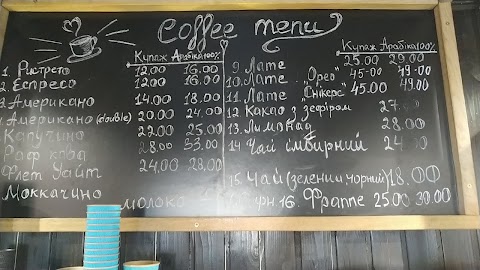 Coffee menu
Купаж Арабіка 100%
1. Ристрето 12.00 16.00
2. Еспресо 12.00 16.00
3. Американо 14.00 18.00
Американо (double) 20.00 24.00
Капучино 22.00 25.00
Раф кава 28.00 33.00
Флет Уайт 24.00 28.00
Моккачино
молоко
Купаж Арабіка 100%
9. Лате 25.00 29.00
10. Лате "Орео" 45-00 49-00
11. Лате "Снікерс" 45.00 49.00
12. Какао з зефіром
13. Лимонад 28.00
14 Чай імбирний
15. Чай (зелений, чорний) 18.00
16. Фраппе 25.00 30.00